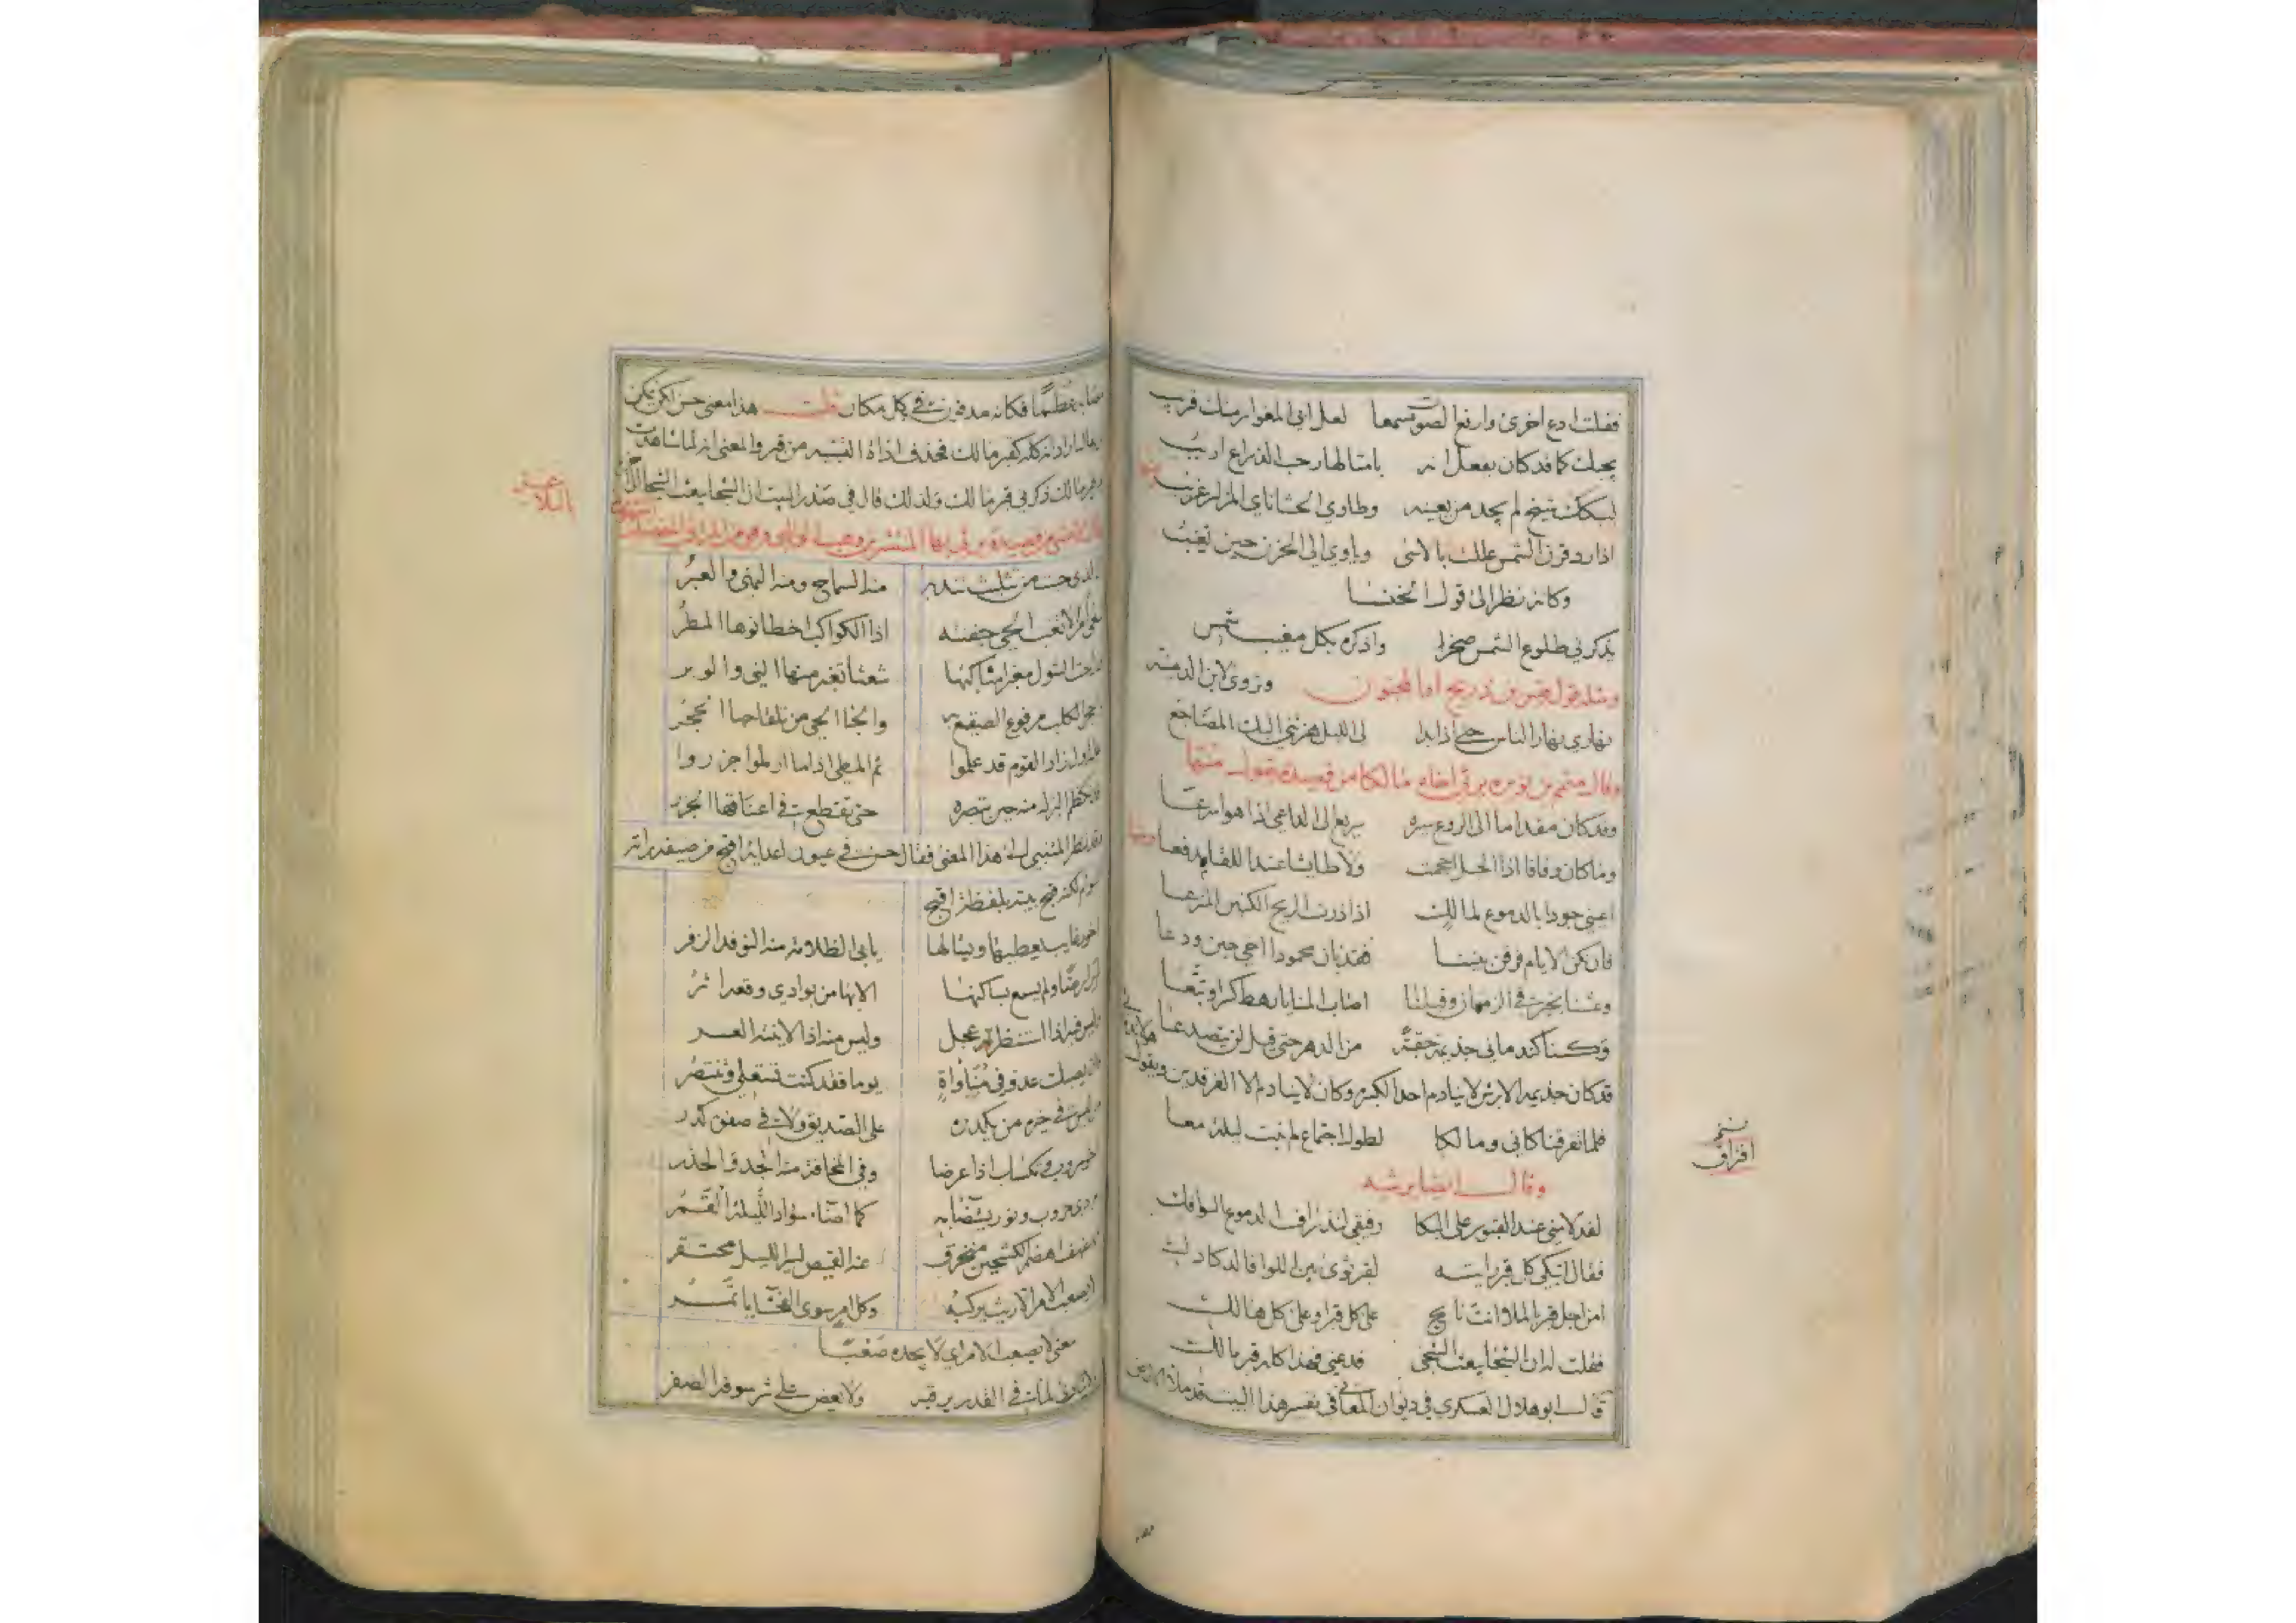 فقلت ادع اخرى وارفع الصوت سمعا لعل ابي المغوار منك قريب
يجبك كما قد كان يفعل انه بامثالها رحب الذراع اريب
ليبكك شيخ لم يجد من يعينه وطاوي الحشا ناي المزار غريب
اذا رد قرن الشمس علك بالاسى وياوي الى الحزن حين تغيب
وكانه نظر الى قول الخنسا
يذكرني طلوع الشمس صخرا واذكره بكل مغيب شمس
ومثله قول قيس بن ذريح او المجنون وتروى لابن الدمينة
نهاري نهار الناس حتى اذا بدا لي الليل هزتني اليك المضاجع
وقال متمم بن نويره يرثي اخاه مالكا من قصيدة يقول منها
وقد كان مقداما الى الروع سيره يريع الى الداعي اذا هو امرعا
وما كان وقافا اذا الخيل احجمت ولا طايشا عند اللقا مدفعا
اعيني جودا بالدموع لمالك اذا ذرت الريح الكنيف المنزعا
فان تكن الايام فرقن بيننا فقد بان محمودا اخي حين ودعا
وعشنا بخير في الزمان وقبلنا اصاب المنايا رهط كسرا وتبعا
وكنا كندماني جذيمة حقبة من الدهر حتى قيل لن يتصدعا
قد كان جذيمه الابرش لا ينادم احدا لكبره وكان لا ينادم الا الفرقدين ويقول
فلما تفرقنا كاني ومالكا لطول اجتماع لم نبت ليلة معا
وقال ايضا يرثيه
لقد لامني عند القبور على البكا رفيقي لتذراف الدموع السوافك
فقال اتبكي كل قبر رايته لقبر ثوى بين اللوا فالدكادك
امن اجل قبر بالملا انت نايح على كل قبر او على كل هالك
فقلت له ان الشجا يبعث الشجى فدعني فهذا كله قبر مالك
قال ابو هلال العسكري في ديوان المعاني في تفسير هذا البيت قد ملا الارض
مصابه عظما فكانه مدفون في كل مكان قلت هذا معنى حسن لكن يمكن
اراد انه كله كقبر مالك فحذف اداة التشبيه من قبر والمعنى انه لما شاهدت
قبر مالك ذكرني قبر مالك ولذلك قال في صدر البيت ان الشجا يبعث الشجا
من قصيدة يرثي بها المنتشر بن وهب
منه السماح ومنه النهي والغير
لا تغب الحي جفنته اذا الكواكب اخطا نوها المطر
شعثا تغير منها الني والوبر
الكلب مرفوع الصقيع به والجا الحي من تلقاحها الحجر
القوم قد علموا ثم المطي اذا ما ارملوا جزروا
البزل منه حين تبصره حتى تقطع في اعناقها الجرر
وقد نظر المتنبي الى هذا المعنى فقال حسن في عيون اعدايه اقبح من ضيفه راته
السوام لكنه قبح بيته بلفظة اقبح
اخو رغايب يعطيها ويسالها يابى الظلامة منه النوفل الزفر
ولم يسمع بساكنها الا بها من بوادي وقعه اثر
وليس فيه اذا استنظرته عجل وليس منه اذا لاينته العسر
فان يصبك عدو في مناواة يوما فقد كنت تستعلي وتنتصر
من ليس في خيره من يكدره على الصديق ولا في صفوه كدر
اخو حروب ومكساب اذا عرضا وفي المخافة منه الجد والحذر
مردى حروب ونور يستضا به كما اضاء سواد الليلة القمر
مهفهف اهضم الكشحين منخرق عنه القميص لسير الليل محتقر
لا يصعب الامر الا ريث يركبه وكل امر سوى الفحشا ياتمر
معنى لا يصعب الامر اي لا يجده صعبا
لا يتارى لما في القدر يرقبه ولا يعض على شرسوفه الصفر